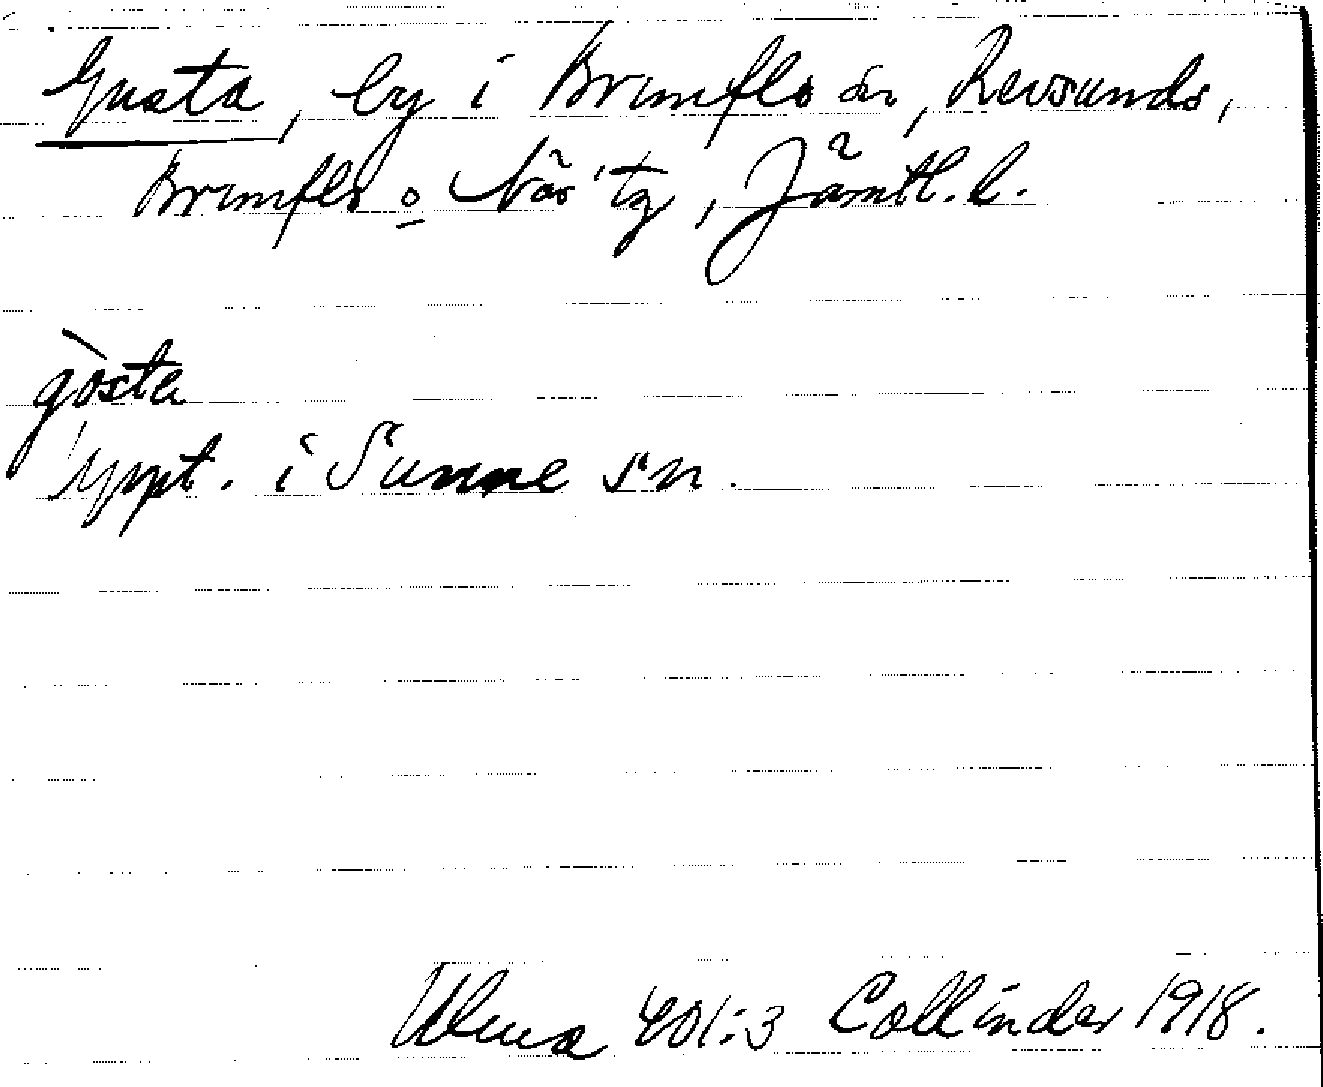 Gusta, by i Brunflo sn, Revsunds,
Brunflo o Näs tg, Jämtl. l.
gòsta
Uppt. i Sunne sn.
Ulma 401:3 Collinder 1918.